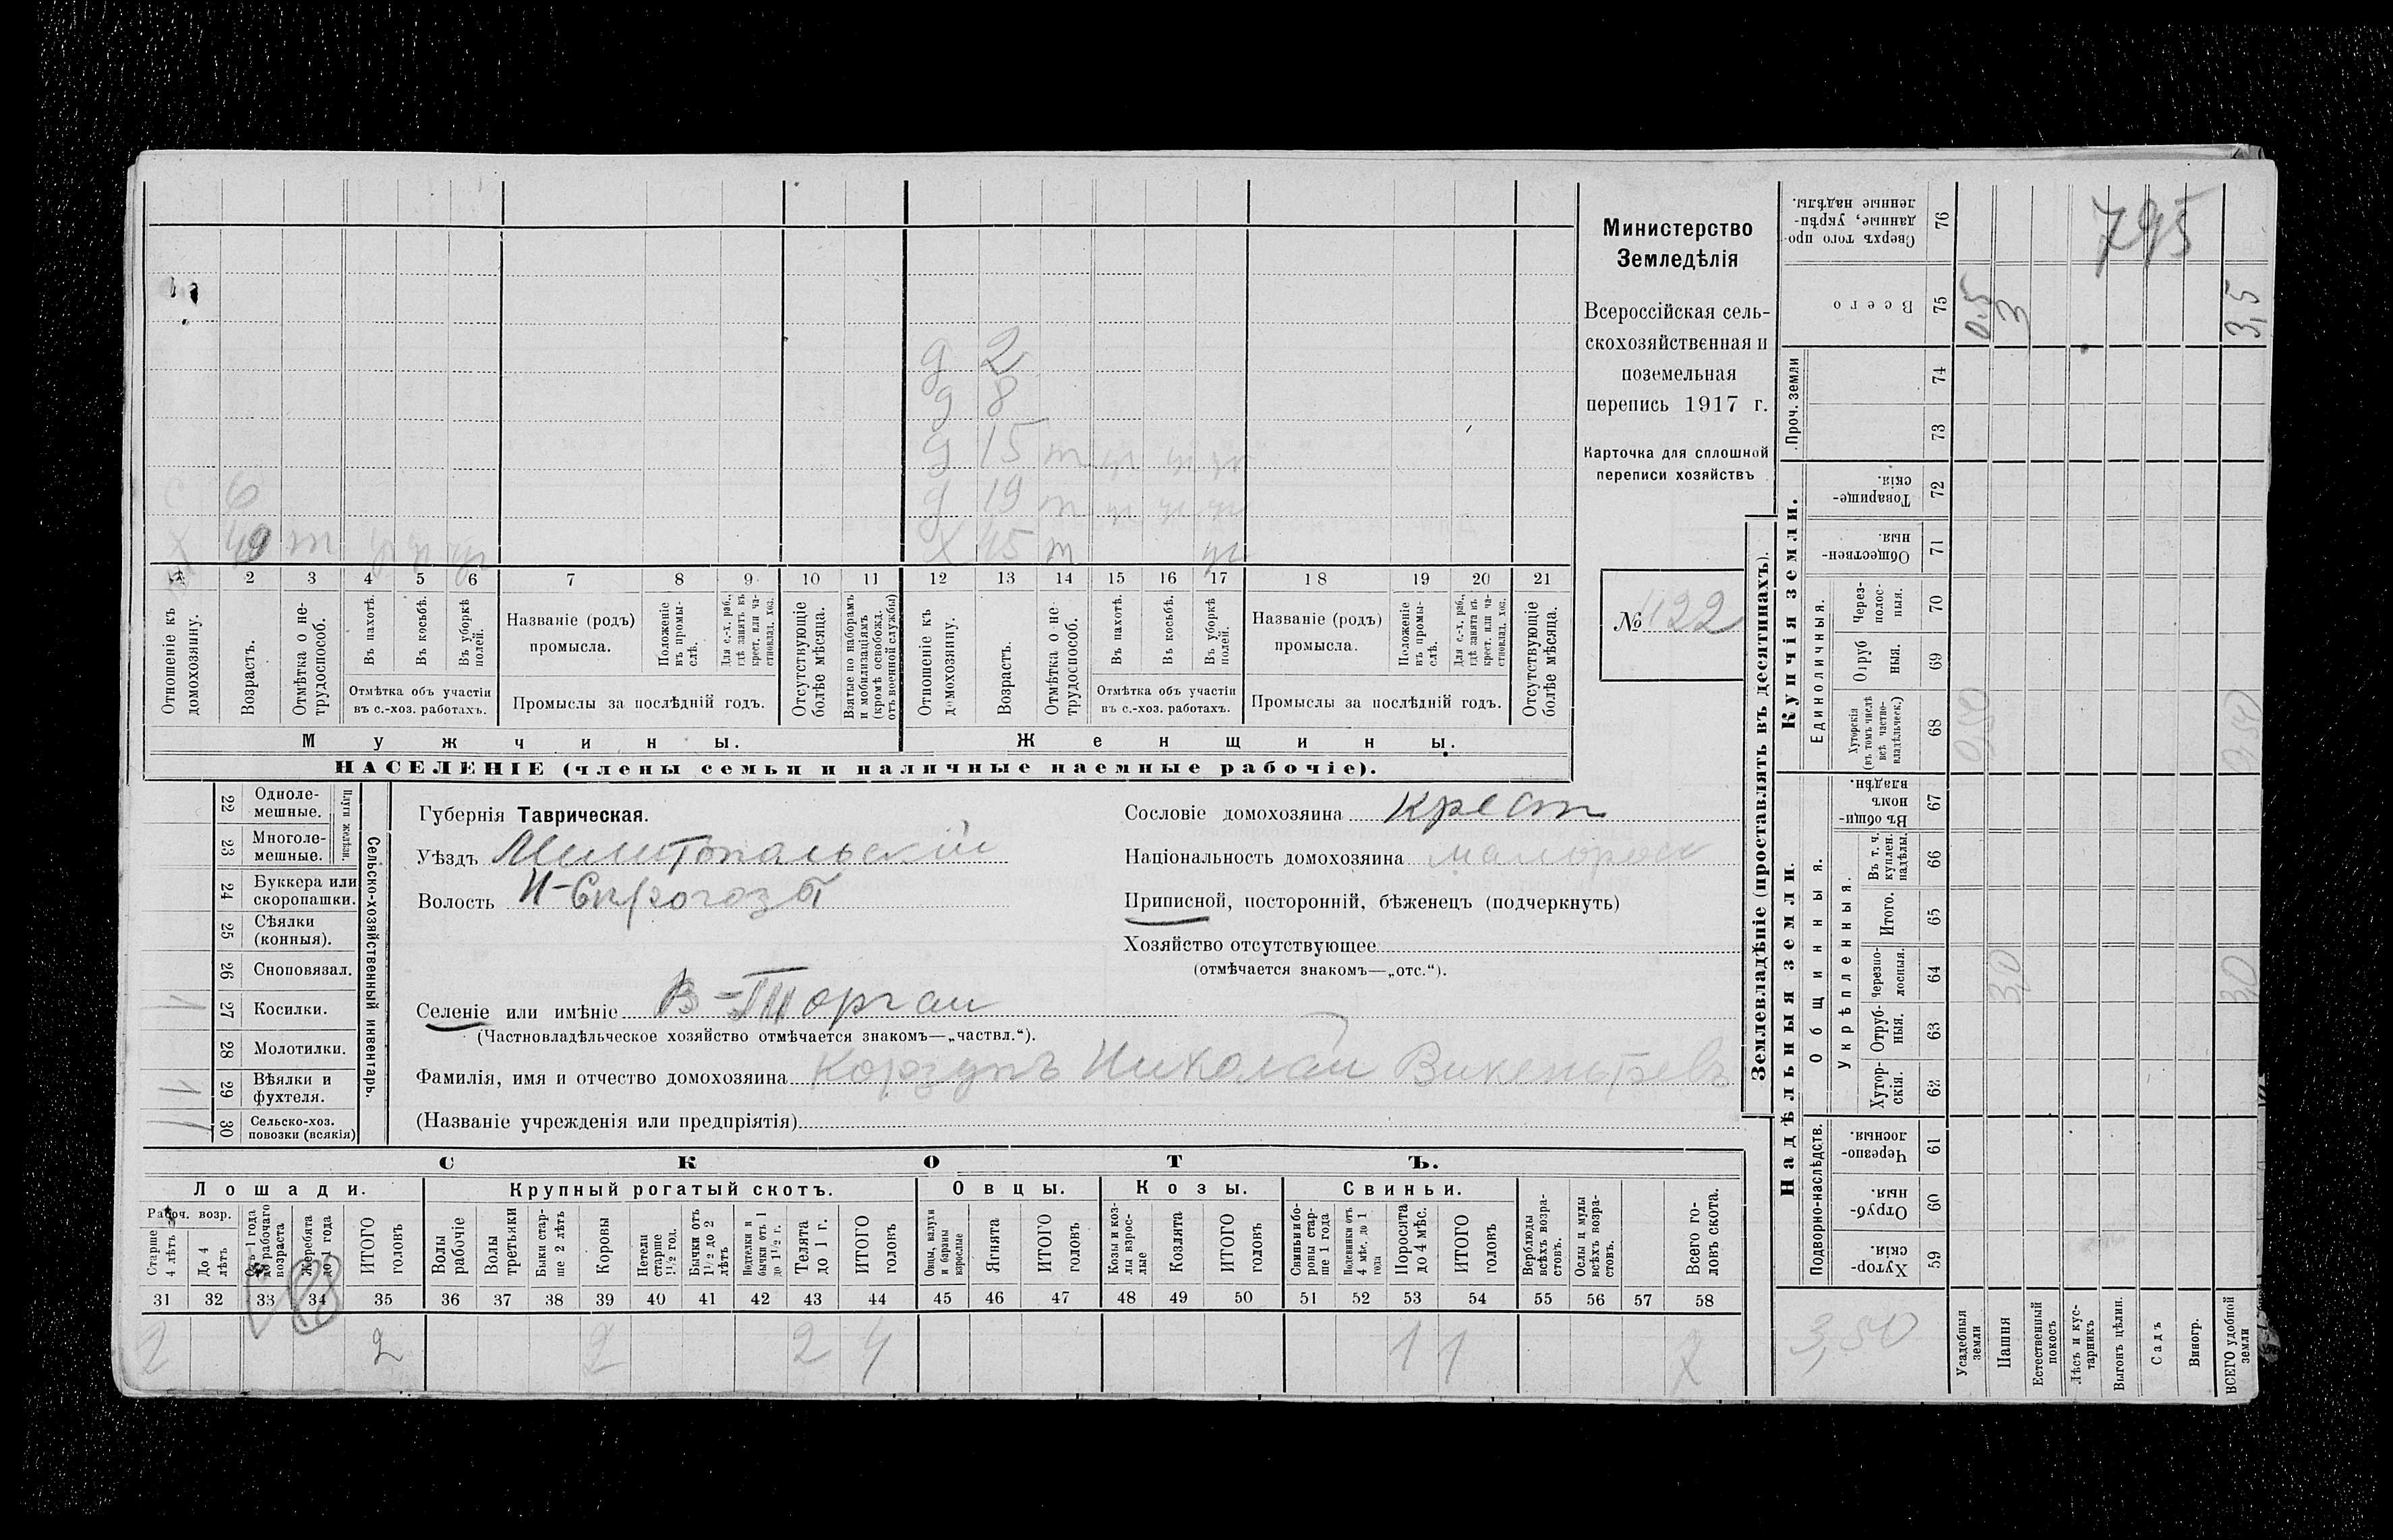 Министерство
Земледѣлія
Всероссійская сель-
скохозяйственная и
поземельная
перепись 1917 г.
Карточка для сплошной
переписи хозяйствъ
№ 122
д 2
д 8
д 15 т
д 19 т
с 6
х 49 т
х 45 т
1 2 3 4 5 6 7 8 9 10 11 12 13 14 15 16 17 18 19 20 21
Отношеніе къ домохозяину.
Возрастъ.
Отмѣтка о не-трудоспособ.
Въ пахотѣ.
Въ косьбѣ.
Въ уборкѣ полей.
Отмѣтка объ участіи
въ с.-хоз. работахъ.
Названіе (родъ)
промысла.
Положеніе въ промы-слѣ.
Для с.-х. раб., гдѣ занятъ въ крест. или ча-стновлад. хоз.
Промыслы за послѣдній годъ.
Отсутствующіе болѣе мѣсяца.
Взятые по наборамъ и мобилизаціямъ (кромѣ освобожд. отъ военной службы)
Отношеніе къ домохозяину.
Возрастъ.
Отмѣтка о не-трудоспособ.
Въ пахотѣ.
Въ косьбѣ.
Въ уборкѣ полей.
Отмѣтка объ участіи
въ с.-хоз. работахъ.
Названіе (родъ)
промысла.
Положеніе въ промы-слѣ.
Для с.-х. раб., гдѣ занята въ крест. или ча-стновлад. хоз.
Промыслы за послѣдній годъ.
Отсутствующіе болѣе мѣсяца.
Мужчины.
Женщины.
НАСЕЛЕНІЕ (члены семьи и наличные наемные рабочіе).
22 Одноле-мешные.
23 Многоле-мешные.
Плуги желѣзн.
24 Буккера или скоропашки.
25 Сѣялки (конныя).
26 Сноповязал.
27 Косилки. 1
28 Молотилки.
29 Вѣялки и фухтеля. 1
30 Сельско-хоз. повозки (всякія) 1
Сельско-хозяйственный инвентарь.
Губернія Таврическая.
Уѣздъ Мелитопольскій
Волость Н-Сѣрогозы
Селеніе или имѣніе В-Торгаи
(Частновладѣльческое хозяйство отмѣчается знакомъ—„частвл.“).
Фамилія, имя и отчество домохозяина Корзунъ Николай Викентьевъ
(Названіе учрежденія или предпріятія)
Сословіе домохозяина Крест
Національность домохозяина малоросс
Приписной, посторонній, бѣженецъ (подчеркнуть)
Хозяйство отсутствующее
(отмѣчается знакомъ—„отс.“).
СКОТЪ.
Лошади.
Крупный рогатый скотъ.
Овцы.
Козы.
Свиньи.
Рабоч. возр.
Старше 4 лѣтъ
До 4 лѣтъ
Отъ 1 года до рабочаго возраста
Жеребята до 1 года
ИТОГО головъ
Волы рабочіе
Волы третьяки
Быки стар-ше 2 лѣтъ
Коровы
Нетели старше 1½ год.
Бычки отъ 1½ до 2 лѣтъ
Подтелки и бычки отъ 1 до 1½ г.
Телята до 1 г.
ИТОГО головъ
Овцы, валухи и бараны взрослые
Ягнята
ИТОГО головъ
Козы и коз-лы взрос-лые
Козлята
ИТОГО головъ
Свиньи и бо-ровы стар-ше 1 года
Подсвинки отъ 4 мѣс. до 1 года
Поросята до 4 мѣс.
ИТОГО головъ
Верблюды всѣхъ возра-стовъ.
Ослы и мулы всѣхъ возра-стовъ.
Всего го-ловъ скота.
31 32 33 34 35 36 37 38 39 40 41 42 43 44 45 46 47 48 49 50 51 52 53 54 55 56 57 58
2 2 2 2 4 1 1 7
Землевладѣніе (проставлять въ десятинахъ).
Надѣльныя земли.
Купчія земли.
Проч. земли
Подворно-наслѣдств.
Общинныя.
Укрѣпленныя.
Единоличныя.
Хутор-скія. 59
Отруб-ныя. 60
Черезпо-лосныя. 61
Хутор-скія. 62
Отруб-ныя. 63
Черезпо-лосныя. 64
Итого. 65
Въ т. ч. куплен. надѣлы. 66
Въ общи-номъ владѣн. 67
Хуторскія (въ томъ числѣ всѣ частно-владѣльческ.) 68
Отруб ныя. 69
Через-полос-ныя. 70
Обществен-ныя. 71
Товарище-скія. 72
73
74
Всего 75
Сверхъ того про-данные, укрѣп-ленные надѣлы. 76
Усадебныя земли
Пашня
Естественный покосъ
Лѣсъ и кус-тарникъ
Выгонъ цѣлин.
Садъ
Виногр.
ВСЕГО удобной земли
795
0,5
3
3,5
0,50
0,50
3,0
3,0
3,50